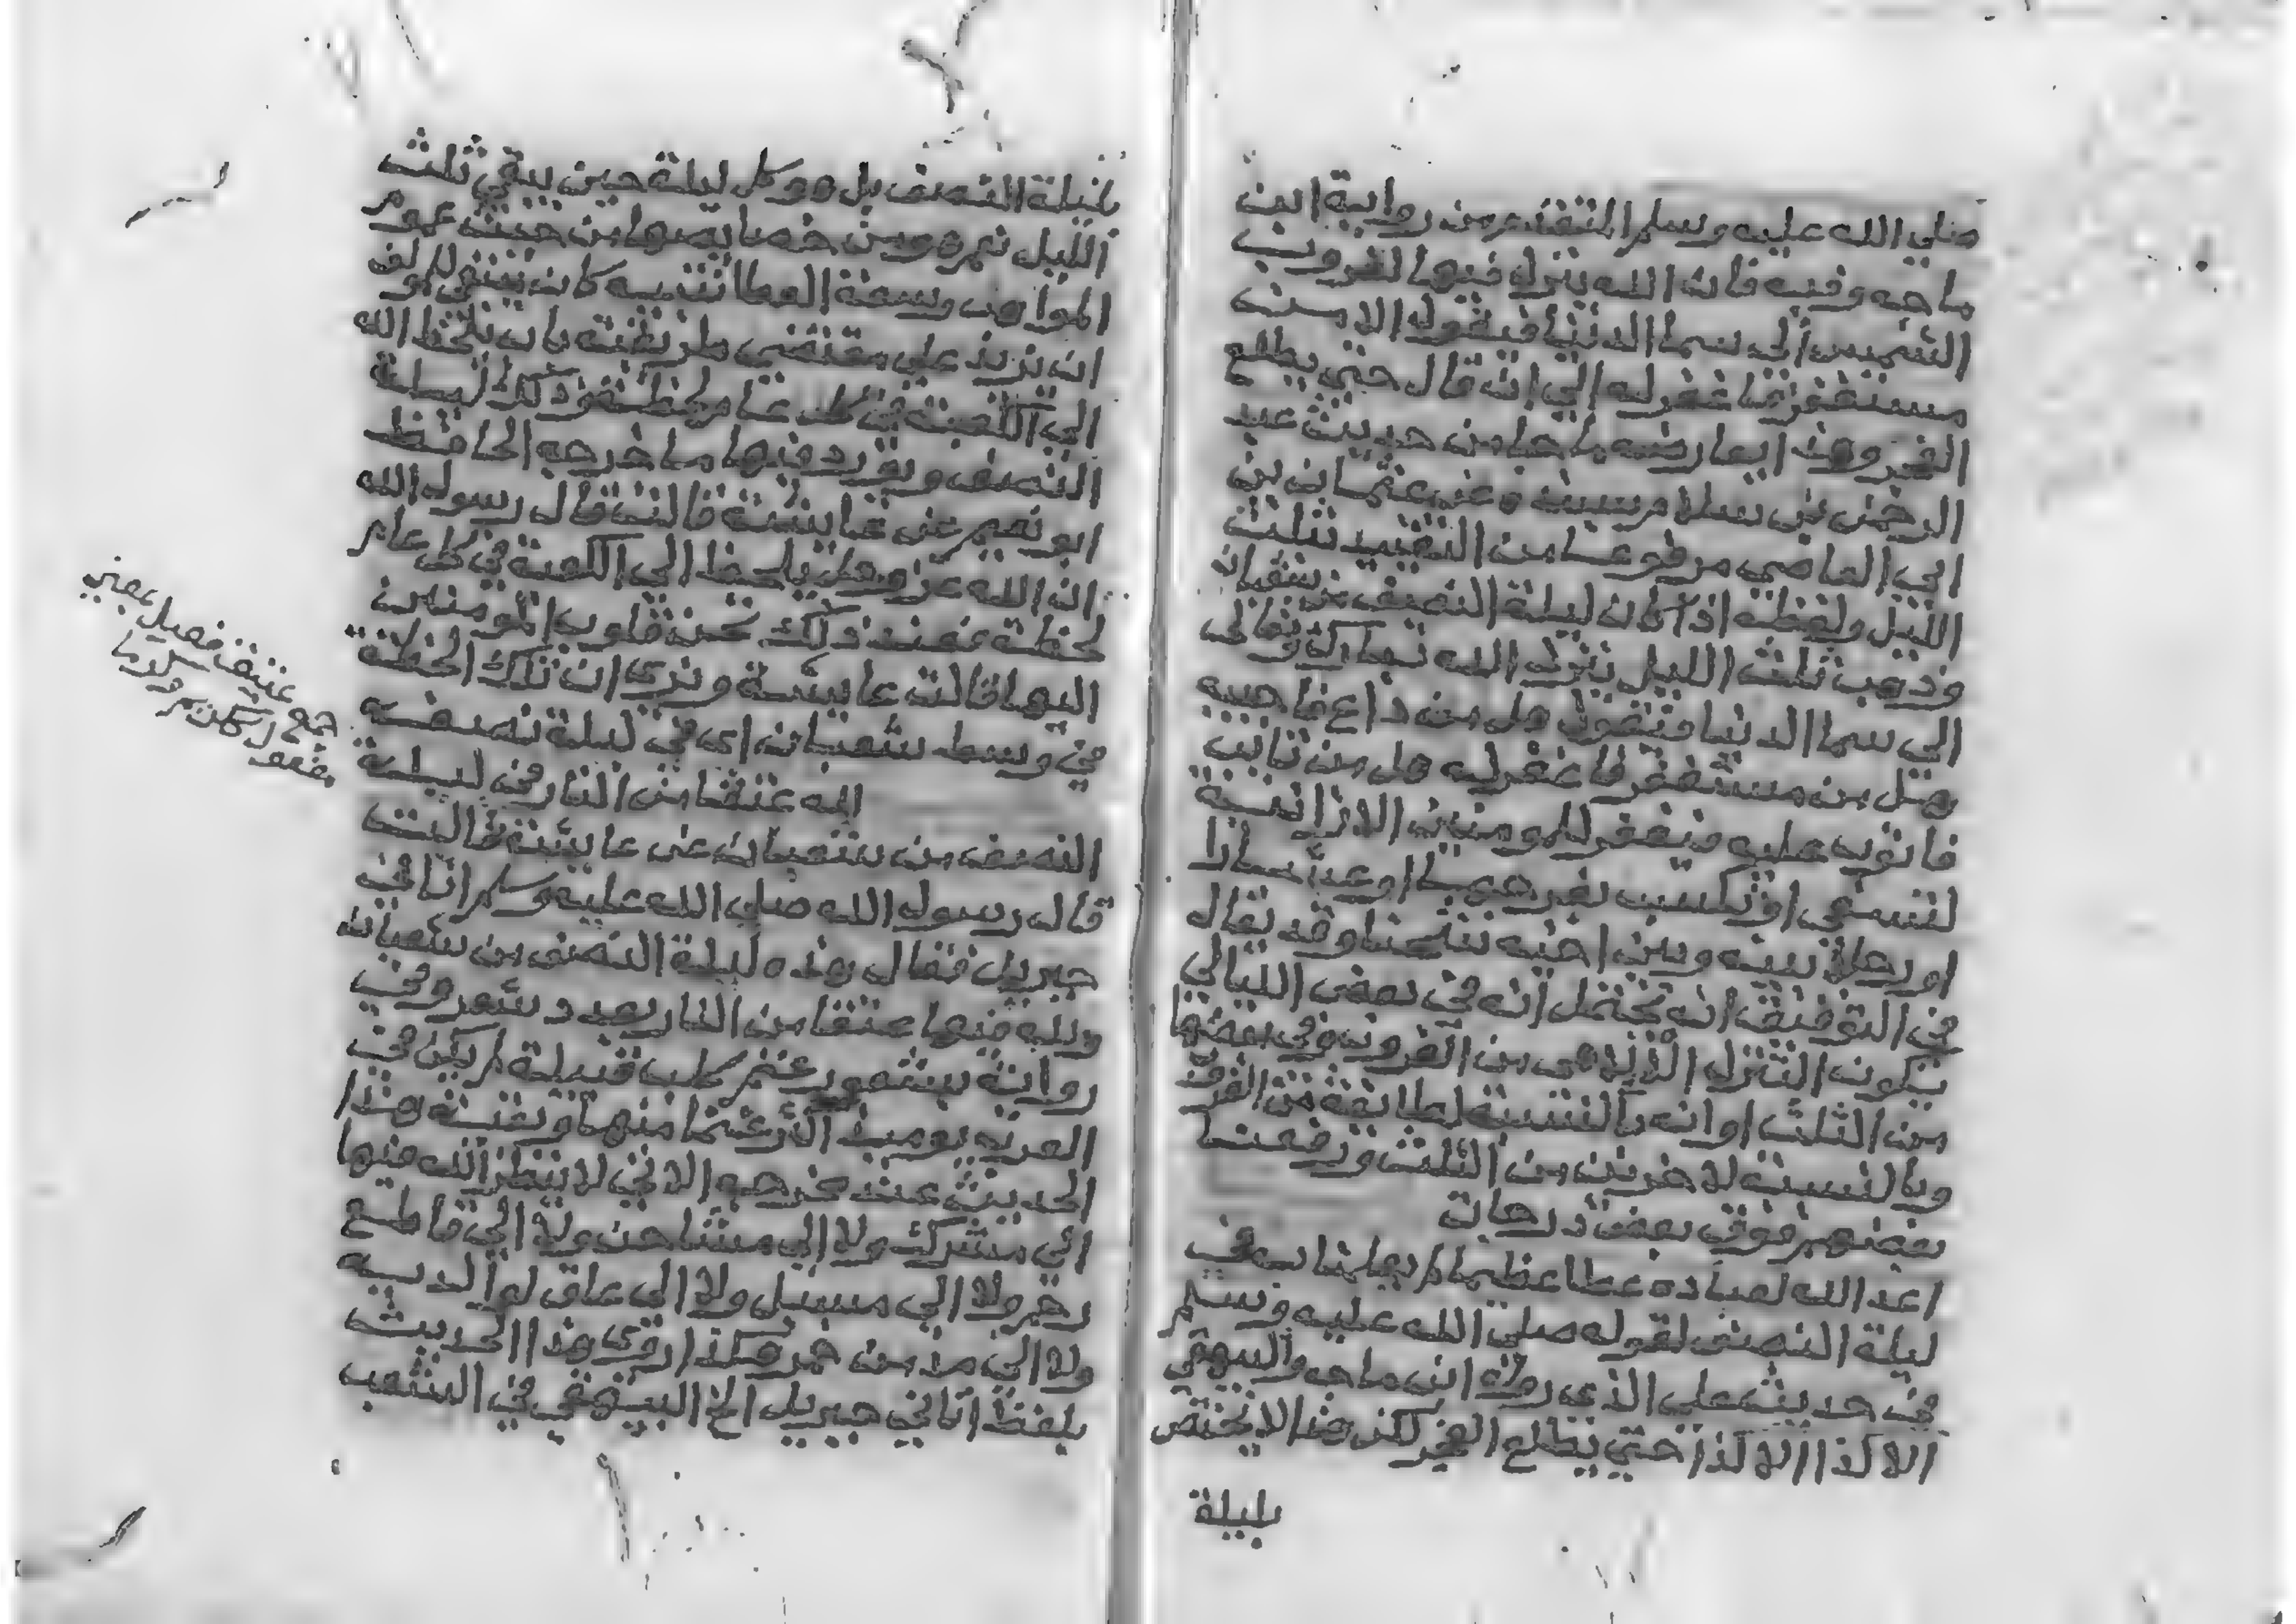 صلي الله عليه وسلم المتقدم من رواية ابن
ماجه وفيه فان الله ينزل فيها لغروب
الشمس الي سما الدنيا فيقول الا من
مستغفر فاغفر له الي ان قال حتي يطلع
الفجر وهذا يعارضه ما جا من حديث عبد
الرحمن بن سلام وعن عثمان بن
ابي العاصي مرفوعا من التقييد بثلث
الليل ولفظه اذا كان ليلة النصف من شعبان
وذهب ثلث الليل ينزل الله تبارك وتعالي
الي سما الدنيا فيقول هل من داع فاجيبه
هل من مستغفر فاغفر له هل من تائب
فاتوب عليه فيغفر للمومنين الا زانية
تسعي او تكسب بفرجها او عشارا
او رجلا بينه وبين اخيه شحنا وقد يقال
في التوفيق انه يحتمل انه في بعض الليالي
يكون التنزل الالاهي من الغروب وفي بعضها
من الثلث او انه بالنسبة لطائفة من الغروب
وبالنسبة لاخرين من الثلث ورفعنا
بعضهم فوق بعض درجات
اعد الله لعباده عطا عظيما
ليلة النصف لقوله صلي الله عليه وسلم
في حديث علي الذي رواه ابن ماجه والبيهقي
الا كذا الا كذا حتي يطلع الفجر لكن هذا لا يختص
بليلة
بليلة النصف بل هو كل ليلة حين يبقي ثلث
الليل نعم هو من خصايصها من حيث عموم
المواهب وسعة العطا تنبيه كان ينبغي للمولف
ان يزيد علي مقتضي طريقته بان يلحظ الله
الي الكعبة في كل عام لحظة وذلك ليلة
النصف ويورد فيها ما خرجه الحافظ
ابو نعيم عن عايشة قالت قال رسول الله
ان الله عز وجل يلحظ الي الكعبة في كل عام
لحظة فعند ذلك تحن قلوب المومنين
اليها قالت عايشة ونري ان تلك اللحظة
في وسط شعبان اي في ليلة نصفه
لله عتقا من النار في ليلة
النصف من شعبان عن عايشة قالت
قال رسول الله صلي الله عليه وسلم اتاني
جبريل فقال هذه ليلة النصف من شعبان
ولله فيها عتقا من النار بعدد شعر وفي
رواية بشعور غنم كلب قبيلة لم يكن في
العرب يوميذ اكثر غنما منها وبقية هذا
الحديث عند مخرجه الاتي لا ينظر الله فيها
الي مشرك ولا الي مشاحن ولا الي قاطع
رحم ولا الي مسبل ولا الي عاق لوالديه
ولا الي مدمن خمر هكذا روي هذا الحديث
بلفظ اتاني جبريل الخ البيهقي في الشعب
جمع عتيق فعيل بمعني
مفعول